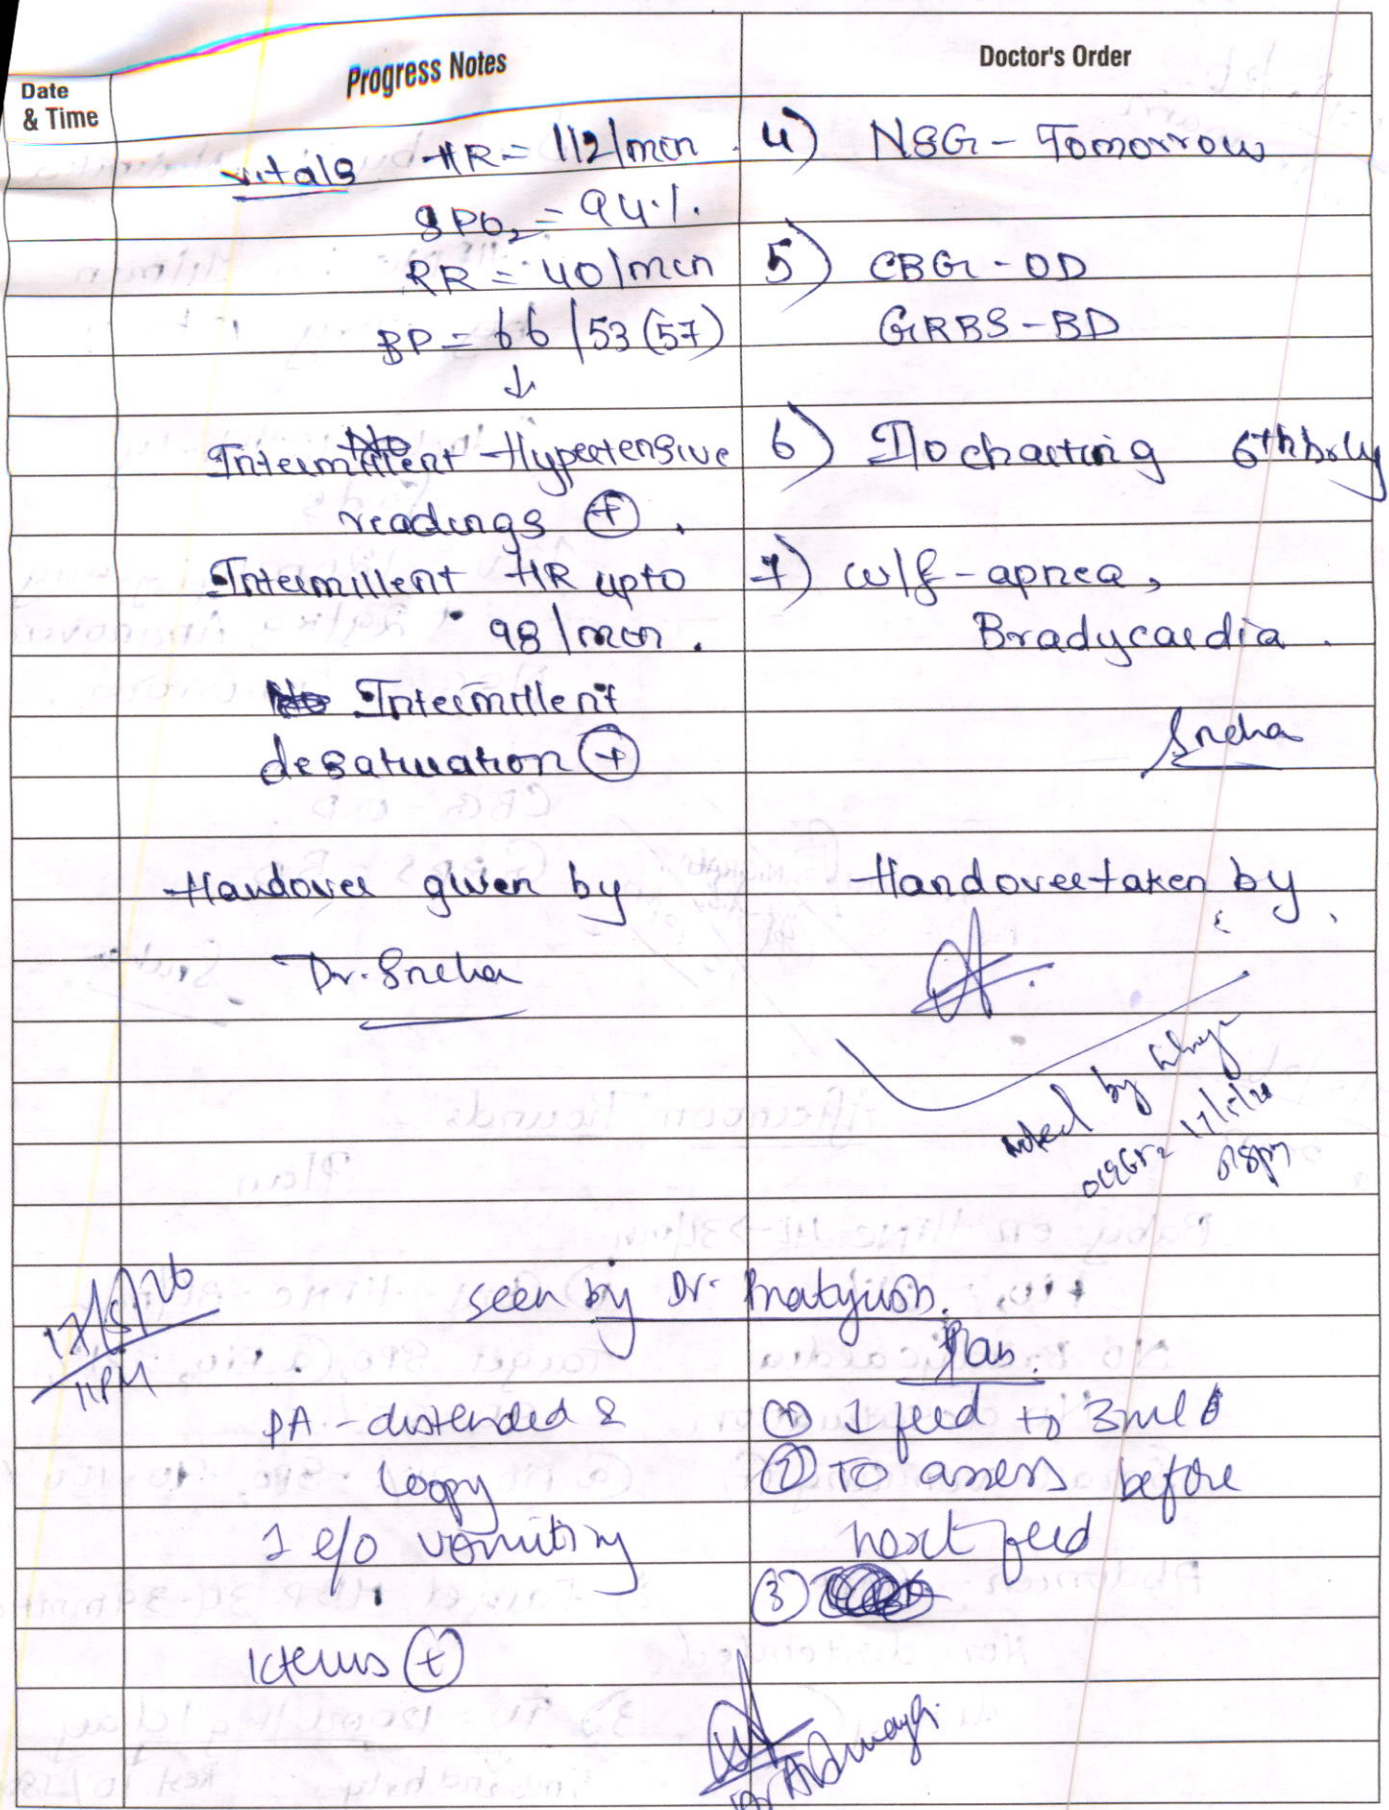 Date
& Time
Progress Notes
Doctor's Order
vitals HR = 112/min
SPO2 = 94%.
RR = 40/min
BP = 66/53 (57)
↓
Intermittent Hypertensive
readings (+).
Intermittent HR upto
98/min.
Intermittent
desaturation (+)
Handover given by
Dr. Sneha
4) NSG - Tomorrow
5) CBG - OD
GRBS - BD
6) I/O charting 6th hrly
7) w/f - apnea,
Bradycardia.
Sneha
Handover taken by
noted by
17/5/26
8pm
17/5/26
11PM
seen by Dr. Pratyush.
PA - distended &
loopy
1 e/o vomiting
Icterus (+)
Plan.
(1) ↓ feed to 3ml
(2) TO assess before
next feed
(3)